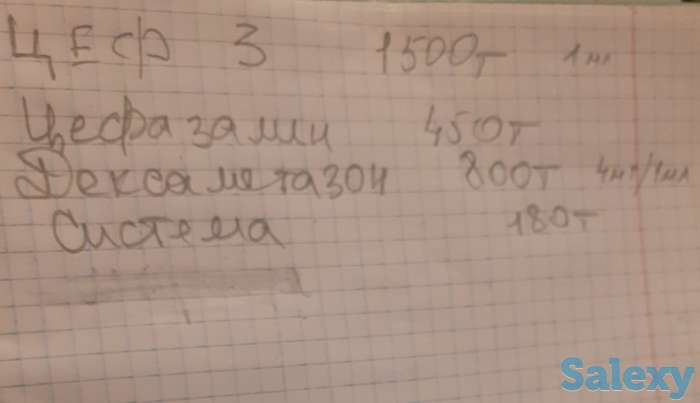 ЦЕФ 3 1500т 1мл
Цефазамин 450т
Дексаметазон 800т 4мг/1мл
Система 180т
Salexy